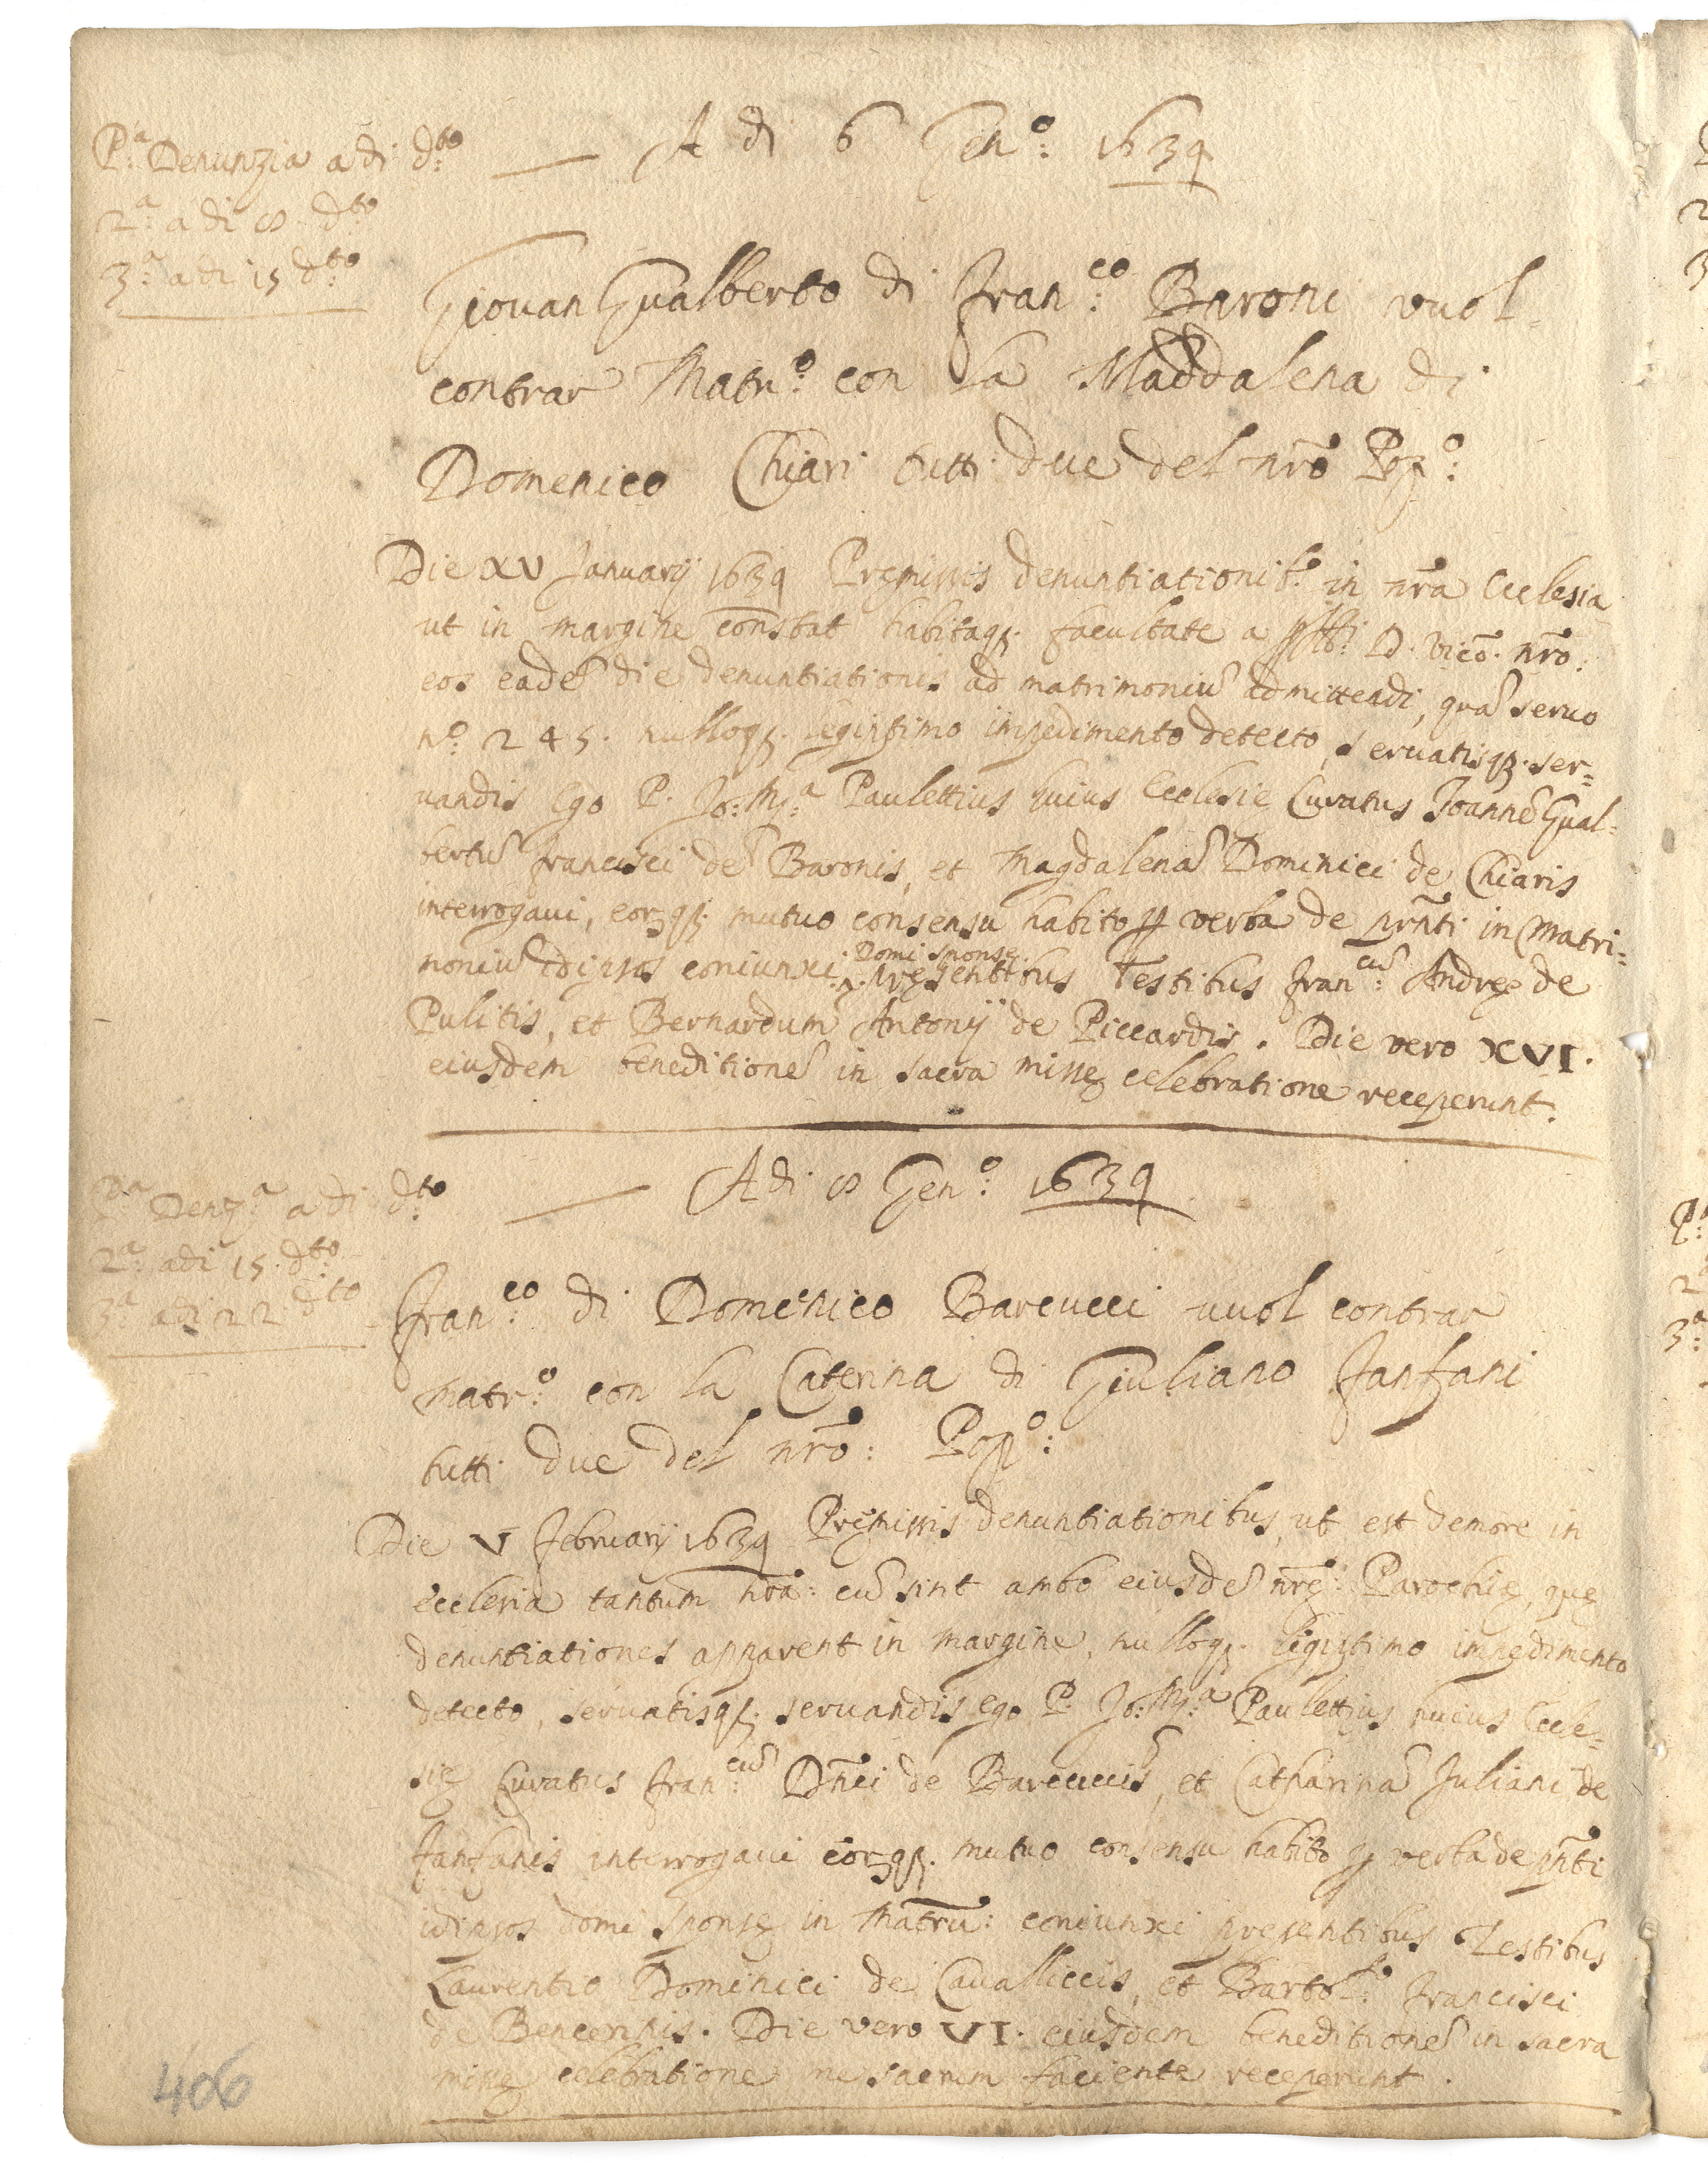 P:ª Denunzia a di d:to
2:ª a di 8 d:to
3:ª a di 15 d:to
A di 6 Gen:º 1639
Giovan Gualberto di Fran:co Baroni vuol
contrar Matr:º con la Maddalena di
Domenico Chiari tutti due del nrõ Pop:º
Die XV Januarij 1639 Premissis denuntiationib.º in nrã Ecclesia
ut in margine constat habitaq; facultate a D. Vicº. nrõ:
eos eadẽ die denuntiationis ad matrimoniũ admittendi, quã servo
nº: 245. nulloq; legiptimo impedimento detecto, servatisq; ser=
vandis Ego P. Jo: M:ª Paulettius huius Ecclesie Curatus Joannẽ Gual=
bertũ Francisci de Baronis, et Magdalenã Dominici de Chiaris
interrogavi, eorq; mutuo consensu habito p verba de pñti in Matri=
moniũ idipsos coniunxi: Domi sponse. presentibus Testibus Fran:cũ Andree de
Pulitis, et Bernardum Antonij de Piccardis. Die vero XVI.
eiusdem beneditionẽ in sacra misse celebratione receperunt.
P:ª Denz:ª a di d:to
2:ª adi 15. d:to
3:ª adi 22 d:to
Adi 8 Gen:º 1639
Fran:co di Domenico Barcucci vuol contrar
Matr:º con la Caterina di Giuliano Fanfani
tutti due del nrõ: Pop:º:
Die V Februarij 1639 Premissis denuntiationibus, ut est demore in
ecclesia tantum nrã: cũ sint ambo eiusdẽ nrẽ: Parochie, que
denuntiationes apparent in margine, nulloq; legiptimo impedimento
detecto, servatisq; servandis ego P. Jo: M:ª Paulettius huius Eccle=
sie Curatus Fran:cũ Dñici de Barcuccis, et Catharinã Juliani de
Fanfanis interrogavi eorq; mutuo consensu habito p verba de pñti
idipsos domi sponse in Matrũ: coniunxi presentibus Testibus
Laurentio Dominici de Cavalliccis, et Bartol:º Francisci
de Bencennis. Die vero VI. eiusdem beneditionẽ in sacra
misse celebratione me sacrum faciente receperunt.
406